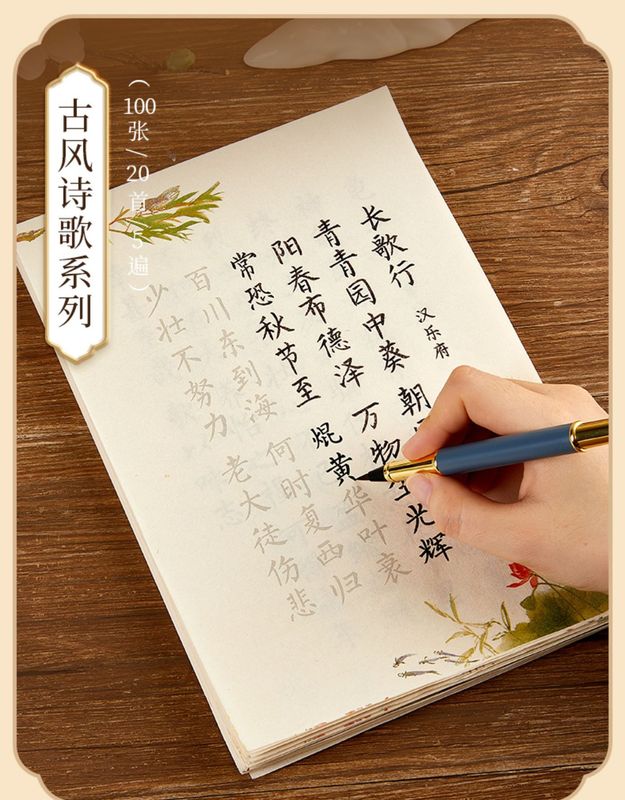 古风诗歌系列
（100张/20首/5遍）
长歌行
汉乐府
青青园中葵 朝
阳春布德泽 万物生光辉
常恐秋节至 焜黄华叶衰
百川东到海 何时复西归
少壮不努力 老大徒伤悲